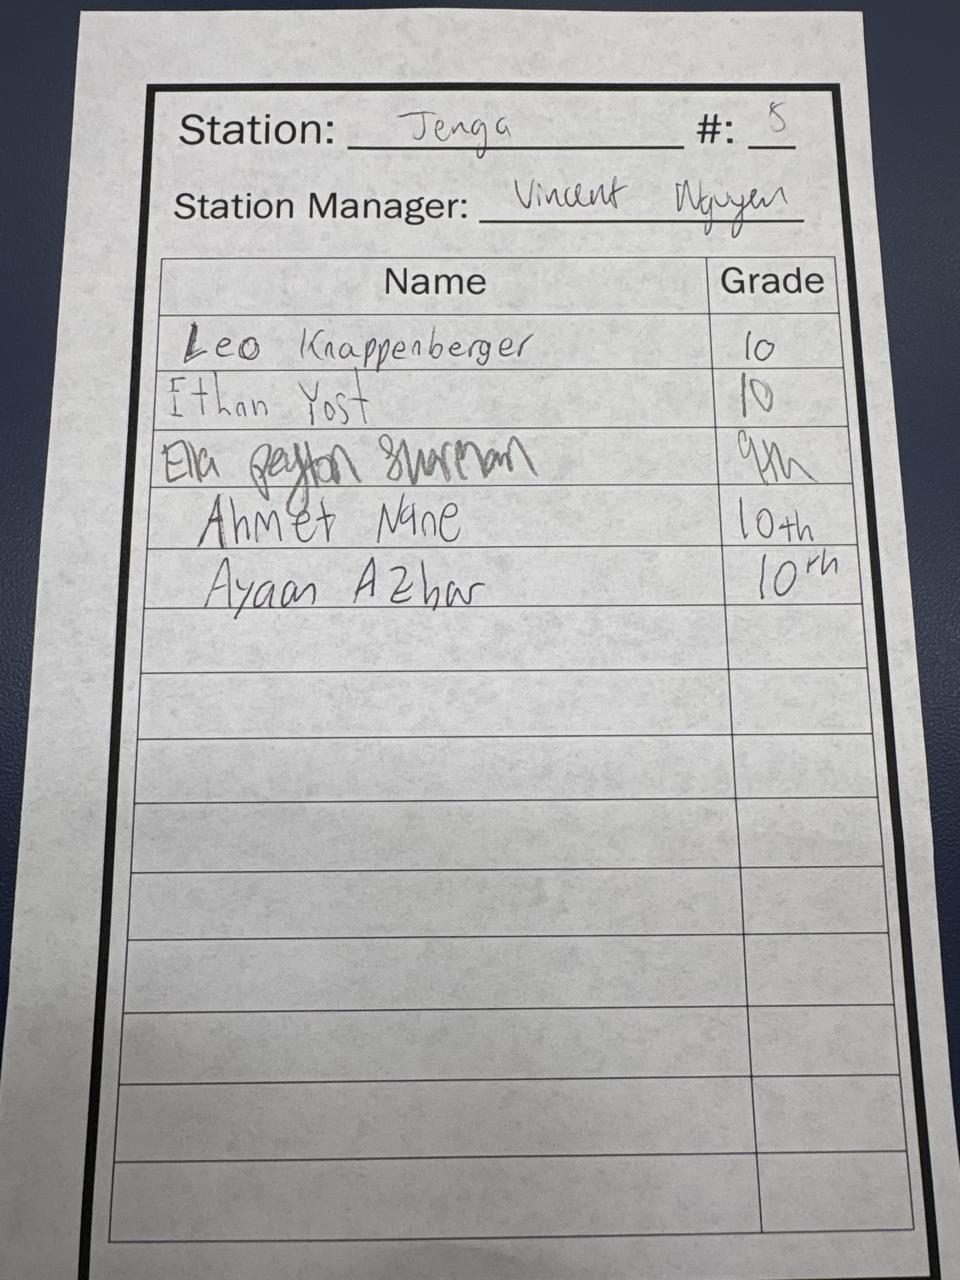 Station: Jenga #: 5
Station Manager: Vincent Nguyen
Name Grade
Leo Knappenberger 10
Ithan Yost 10
Ella Peyton Shurman 9th
Ahmet Nane 10th
Ayaan Azhar 10th